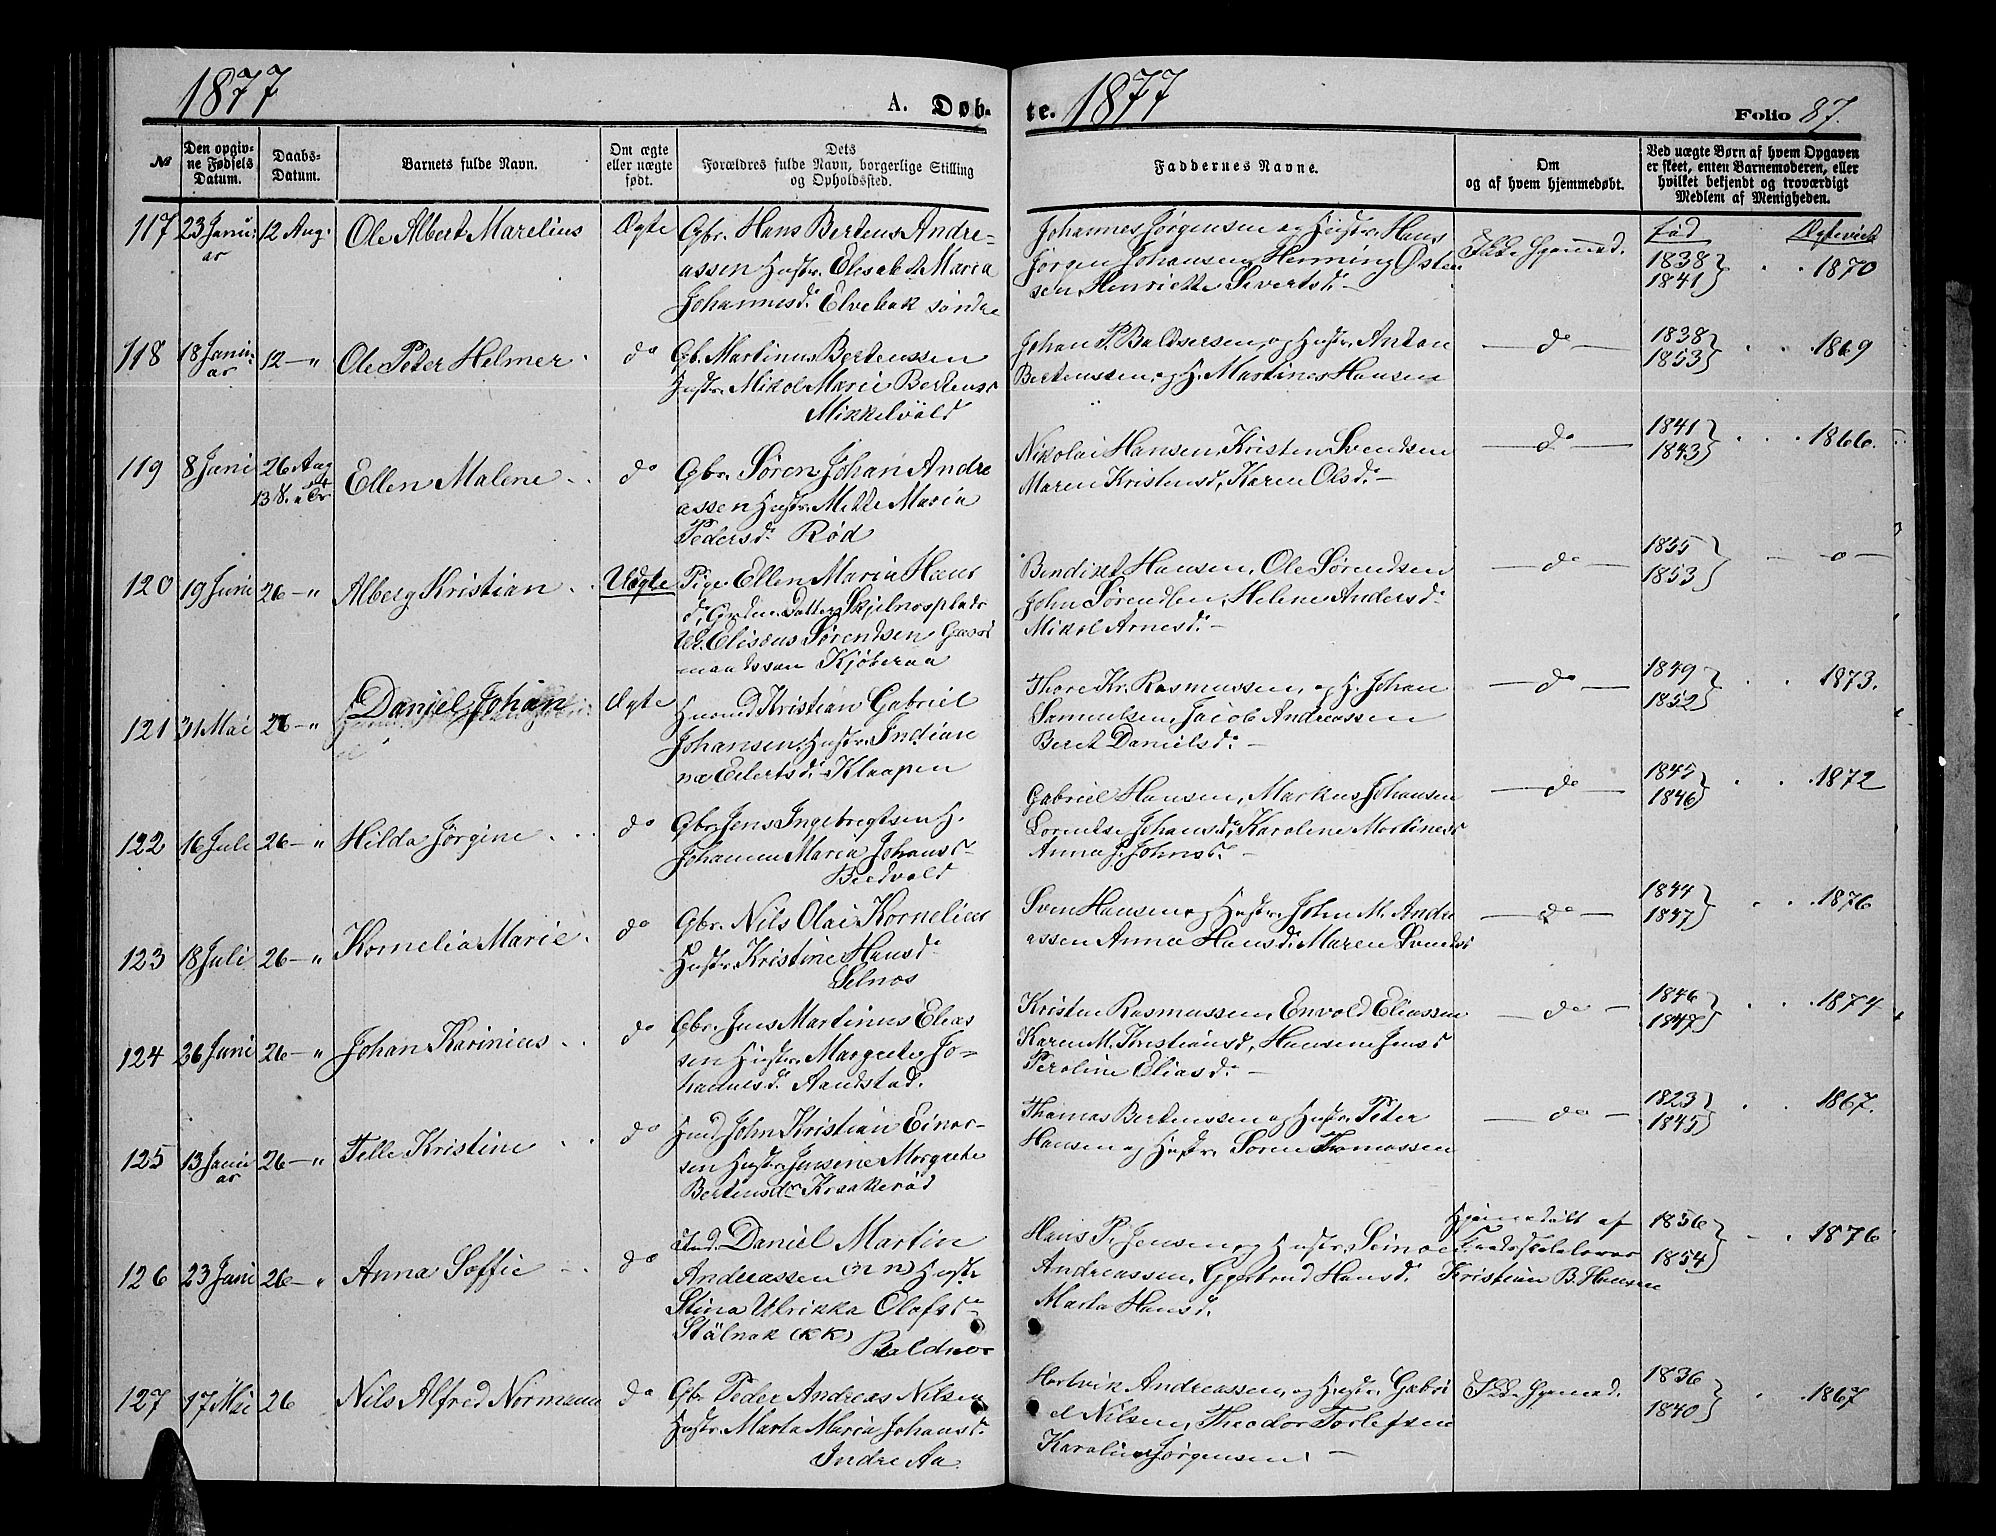 1877
A. Døb-
te. 1877
Folio 87.
№
Den opgiv-
ne Fødsels
Datum.
Daabs-
Datum.
Barnets fulde Navn.
Om ægte
eller uægte
født.
Dets
Forældres fulde Navn, borgerlige Stilling
og Opholdssted.
Faddernes Navne.
Om
og af hvem hjemmedøbt.
Ved uægte Børn af hvem Opgaven
er skeet, enten Barnemoderen, eller
hvilket bekjendt og troværdigt
Medlem af Menigheden.
117 23 Janu- 12 Aug. Ole Albert Marelius Ægte Gbr. Hans Bertens Andre-
ar
assen Hustr. Elisabet Maria
Johannesd. Elvebak söndre
Johannes Jørgensen og Hustr. Hans
Jørgen Johansen, Henning Østen
sen Henrikke Sivertsd. —
Ikke Hjemmed.
Fød Ægteviet
1838 1841 1870
118 18 Janu- 12 — " Ole Peter Helmer do Gb. Martinus Bertenssen
ar
Hustr. Mikol Marie Bertensd
Mikkelvold
Johan P. Baldsersen, og Hustr. Anton
Bertenssen, og H. Martines Hansen
— do — 1838 1853 1869
119 8 Juni 26 Aug Ellen Malene do Gbr. Søren Johan Andre
assen Hustr. Mette Maria
Pedersd. Rød
Nikolai Hansen, Kristen Svendsen
Maren Kristensd, Karen Olsd. —
— do — 1841 1843 1866.
120 19 Juni 26 — " Alberg Kristian Uægte Pige Ellen Maria Hans
d. Datter Skjelnesplads
Elisæus Sørendsen Gaard
mandssøn Kjöberaa
Bendiket Hansen, Ole Sørendsen
John Sørendsen, Helene Andersd.
Mikol Arnesd. —
— do — 1855 1853 — o —
121 31 Mai 26 — " Daniel Johan Ægte Huusmd Kristian Gabriel
Johansen, Hustr. Indian
na Eilertsd. Klaapen
Thore Kr. Rasmussen, og H. Johan
Samuelsen, Jacob Andreassen
Beret Danielsd. —
— do — 1849 1852 1873.
122 16 Juli 26 — " Hilda Jørgine do Gbr. Jens Ingebregtsen H.
Johanna Maria Johansd
Bredvold
Gabriel Hansen, Markus Johansen
Lorentse Johansd, Karoline Martinesd
Anna J. Johnsd. —
— do — 1845 1846 1872
123 18 Juli 26 — " Kornelia Marie do Gbr. Nils Olai Kornelius
Hustr. Kristine Hansd.
Selnæs
Sven Hansen og Hustr. John M. Andre
assen Anna Hansd. Maren Svendsd
— do — 1844 1847 1876
124 26 Juni 26 — " Johan Karinius do Gbr. Jens Martinus Elias
sen Hustr. Margrete Jo-
hannesd. Aandstad.
Kristen Rasmussen, Envold Eliassen
Karen M. Kristiansd, Hansine Jensd
Peroline Eliasd. —
— do — 1846 1847 1874
125 13 Janu 26 — " Telle Kristine do Husmd. John Kristian Einar-
ar
sen Hustr. Jensine Margrete
Bertensdr Kraakeröd
Thomas Bertenssen og Hustr. Peter
Hansen og Hustr. Søren Tomassen
— do — 1823 1845 1867.
126 23 Juni 26 — " Anna Soffie do Ind. Daniel Martin
Andreassen (N N) Hustr
Stina Ulrikka Olafsd
Stälnak (KK)
Baldnes
Hans P. Jensen og Hustr. Simoe
Andreassen, Gjertrud Hansd.
Marta Hansd.
Hjemmedöbt af
Kristian B. Hansen
1856 1854 1876
127 17 Mai 26 Nils Alfred Normann do Gbr Peder Andreas Nilsen
Hustr. Marta Maria Johansd.
Indre Aa
Hartvik Andreassen, og Hustr. Gabri
el Nilsen, Theodor Torlefsen
Karoline Jørgensen. —
Ikke Hjemmed. 1836 1840 1867